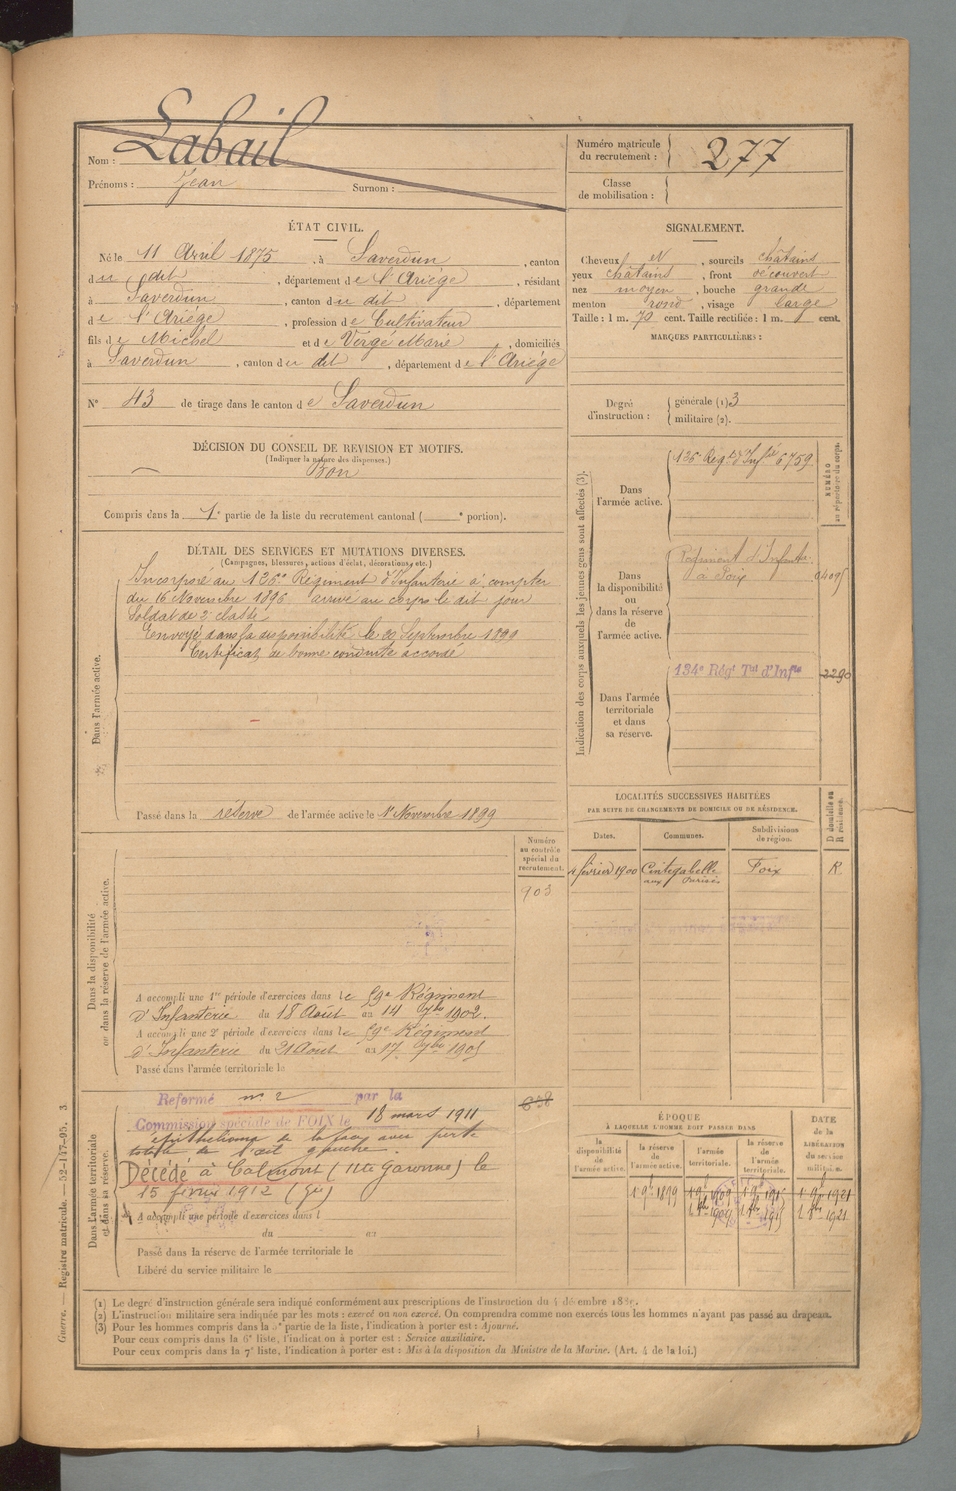 Nom : Labail
Prénoms : Jean Surnom :
Numéro matricule du recrutement : 277
Classe de mobilisation :
ÉTAT CIVIL.
Né le 11 Avril 1875, à Saverdun, canton
du dit, département de l'Ariége, résidant
à Saverdun, canton du dit, département
de l'Ariége, profession de Cultivateur
fils de Michel et de Verge Marie, domiciliés
à Saverdun, canton du dit, département de l'Ariége
N° 43 de tirage dans le canton de Saverdun
SIGNALEMENT.
Cheveux et, sourcils châtains
yeux châtains, front découvert
nez moyen, bouche grande
menton rond, visage large
Taille : 1 m. 70 cent. Taille rectifiée : 1 m. cent.
MARQUES PARTICULIÈRES :
Degré d'instruction : générale (1) 3
militaire (2).
DÉCISION DU CONSEIL DE REVISION ET MOTIFS.
(Indiquer la nature des dispenses.)
Bon
Compris dans la 1e partie de la liste du recrutement cantonal ( e portion).
DÉTAIL DES SERVICES ET MUTATIONS DIVERSES.
(Campagnes, blessures, actions d'éclat, décorations, etc.)
Dans l'armée active.
Incorporé au 126me Régiment d'Infanterie à compter
du 16 Novembre 1896 arrivé au corps le dit jour
Soldat de 2e classe
Envoyé dans la disponibilité le 20 Septembre 1899
Certificat de bonne conduite accordé
Passé dans la réserve de l'armée active le 1er Novembre 1899
Indication des corps auxquels les jeunes gens sont affectés (3).
NUMÉRO au répertoire du corps.
Dans l'armée active.
126 Regt d'Infrie 6759
Dans la disponibilité ou dans la réserve de l'armée active.
Régiment d'Infantie
à Foix
Dans l'armée territoriale et dans sa réserve.
134e Régt Tal d'Infie 2290
LOCALITÉS SUCCESSIVES HABITÉES
PAR SUITE DE CHANGEMENTS DE DOMICILE OU DE RÉSIDENCE.
Dates. Communes. Subdivisions de région. D domicile ou R résidence.
4 février 1900 Cintegabelle Foix R
aux Parisis
Numéro au contrôle spécial du recrutement.
903
Dans la disponibilité ou dans la réserve de l'armée active.
A accompli une 1re période d'exercices dans le 59e Régiment
d'Infanterie du 18 Août au 14 7bre 1902.
A accompli une 2e période d'exercices dans le 59e Régiment
d'Infanterie du 21 Août au 17 7bre 1905
Passé dans l'armée territoriale le
Dans l'armée territoriale et dans sa réserve.
Réformé n° 2 par la
Commission spéciale de FOIX le 18 mars 1911
épithélioma de la face avec perte
totale de l'œil gauche.
Décédé à Calmont (Hte Garonne) le
15 février 1912
A accompli une période d'exercices dans l
du au
Passé dans la réserve de l'armée territoriale le
Libéré du service militaire le
ÉPOQUE
À LAQUELLE L'HOMME DOIT PASSER DANS
DATE de la LIBÉRATION du service militaire.
la disponibilité de l'armée active. la réserve de l'armée active. l'armée territoriale. la réserve de l'armée territoriale.
1 9bre 1899 1 9bre 1909 1 9bre 1915 1 9bre 1921
1 8bre 1909 1 8bre 1915 1 8bre 1921
(1) Le degré d'instruction générale sera indiqué conformément aux prescriptions de l'instruction du 4 décembre 1889.
(2) L'instruction militaire sera indiquée par les mots : exercé ou non exercé. On comprendra comme non exercés tous les hommes n'ayant pas passé au drapeau.
(3) Pour les hommes compris dans la 5e partie de la liste, l'indication à porter est : Ajourné.
Pour ceux compris dans la 6e liste, l'indication à porter est : Service auxiliaire.
Pour ceux compris dans la 7e liste, l'indication à porter est : Mis à la disposition du Ministre de la Marine. (Art. 4 de la loi.)
Guerre. — Registre matricule. — 52-147-95. 3.